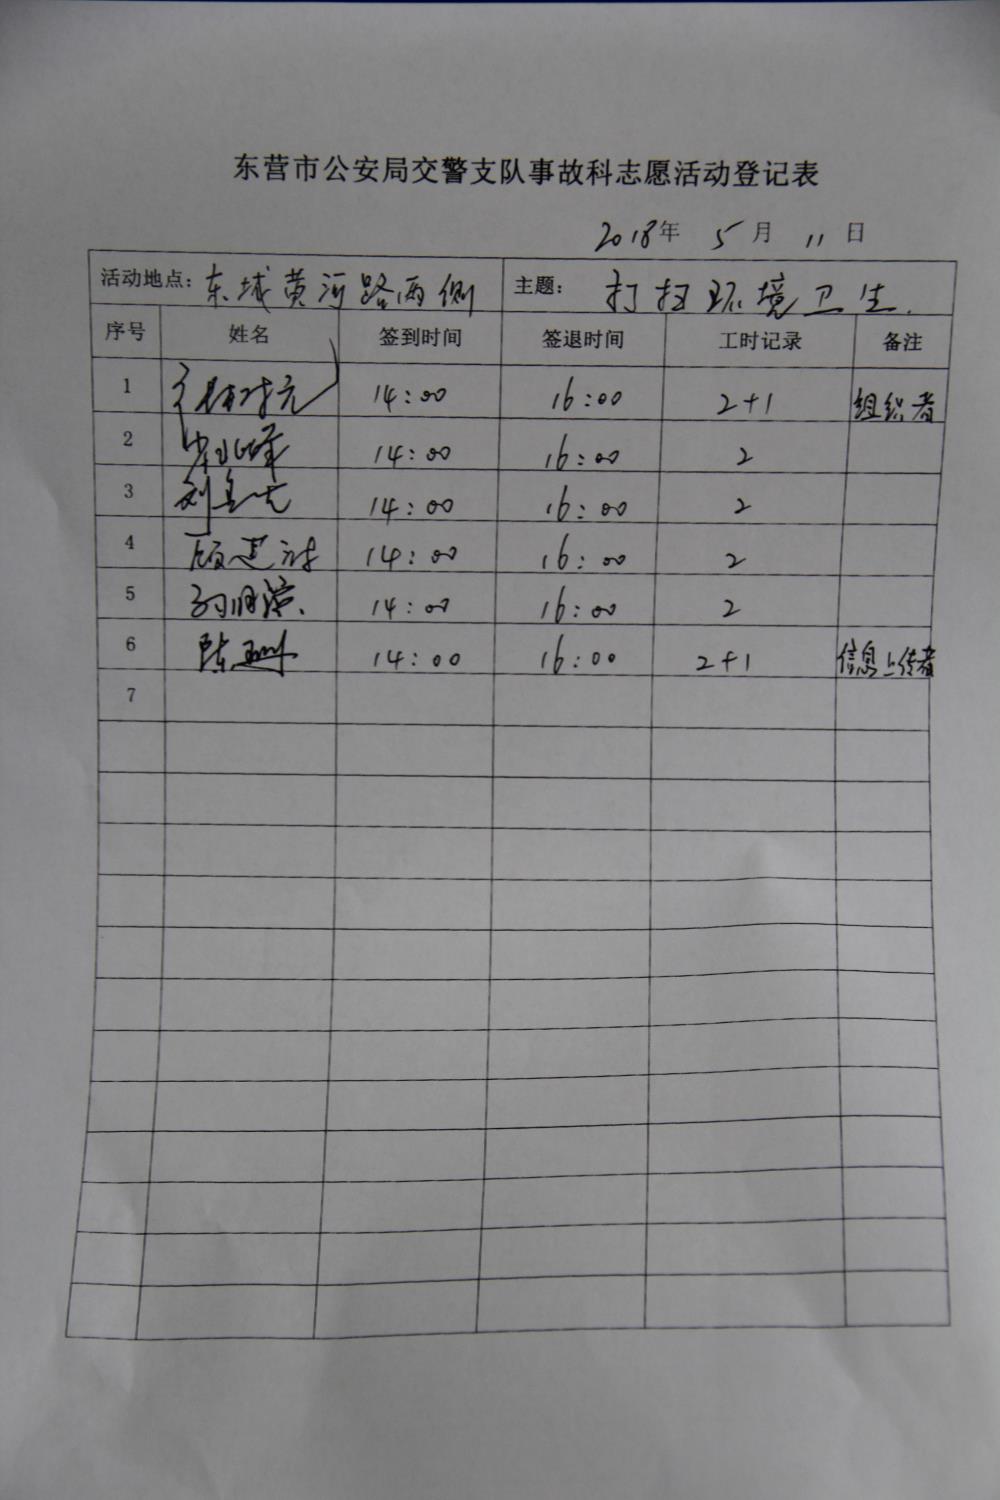 东营市公安局交警支队事故科志愿活动登记表
2018年 5月 11日
活动地点：东城黄河路两侧 主题：打扫环境卫生.
序号 姓名 签到时间 签退时间 工时记录 备注
1 14:00 16:00 2+1 组织者
2 14:00 16:00 2
3 14:00 16:00 2
4 14:00 16:00 2
5 14:00 16:00 2
6 陈珊 14:00 16:00 2+1 信息上传者
7